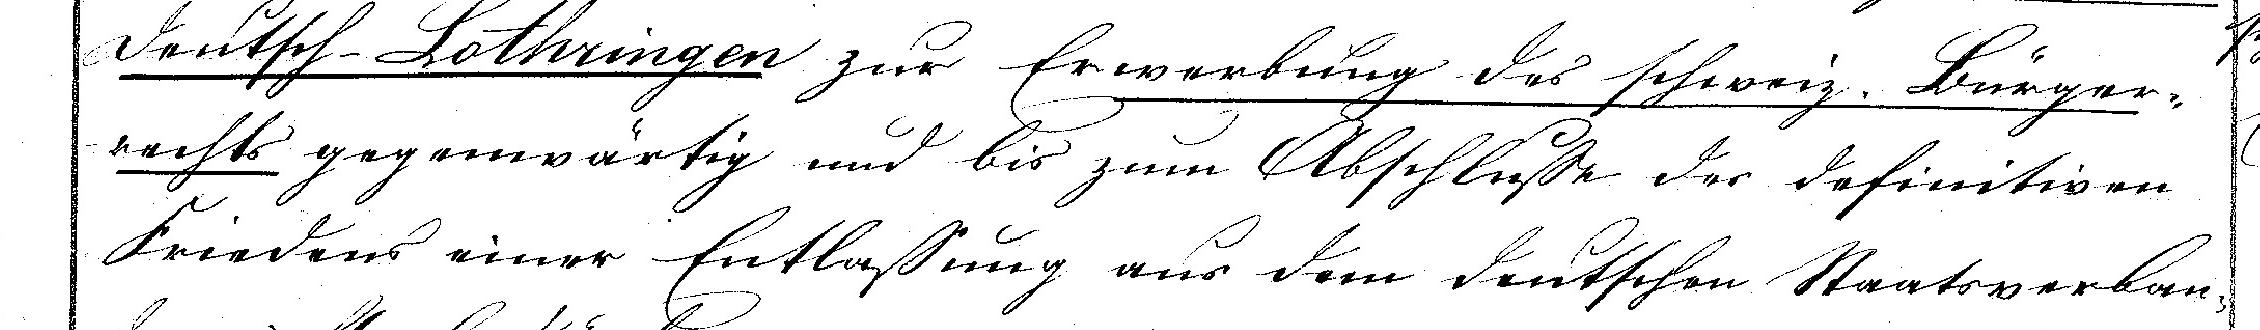 Deutsch-Lothringen zur Erwerbung des schweiz. Bürger-
rechts gegenwärtig und bis zum Abschlusse des definitiven
Friedens einer Entlassung aus dem deutschen Staatsverban-